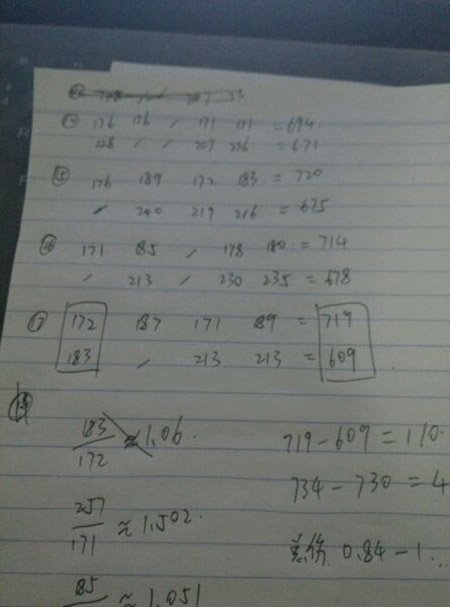 ⑭ 176 176 / 171 171 = 694
228 / / 207 236 = 671
⑮ 176 189 172 183 = 720
/ 240 219 216 = 675
⑯ 171 185 / 178 180 = 714
/ 213 / 230 235 = 678
⑰ 172 187 171 189 = 719
183 / 213 213 = 609
⑱
183/172 ≈ 1.06.
719-609=110.
734-730=4
257/171 ≈ 1.502.
0.84-1...
85
≈ 1.051